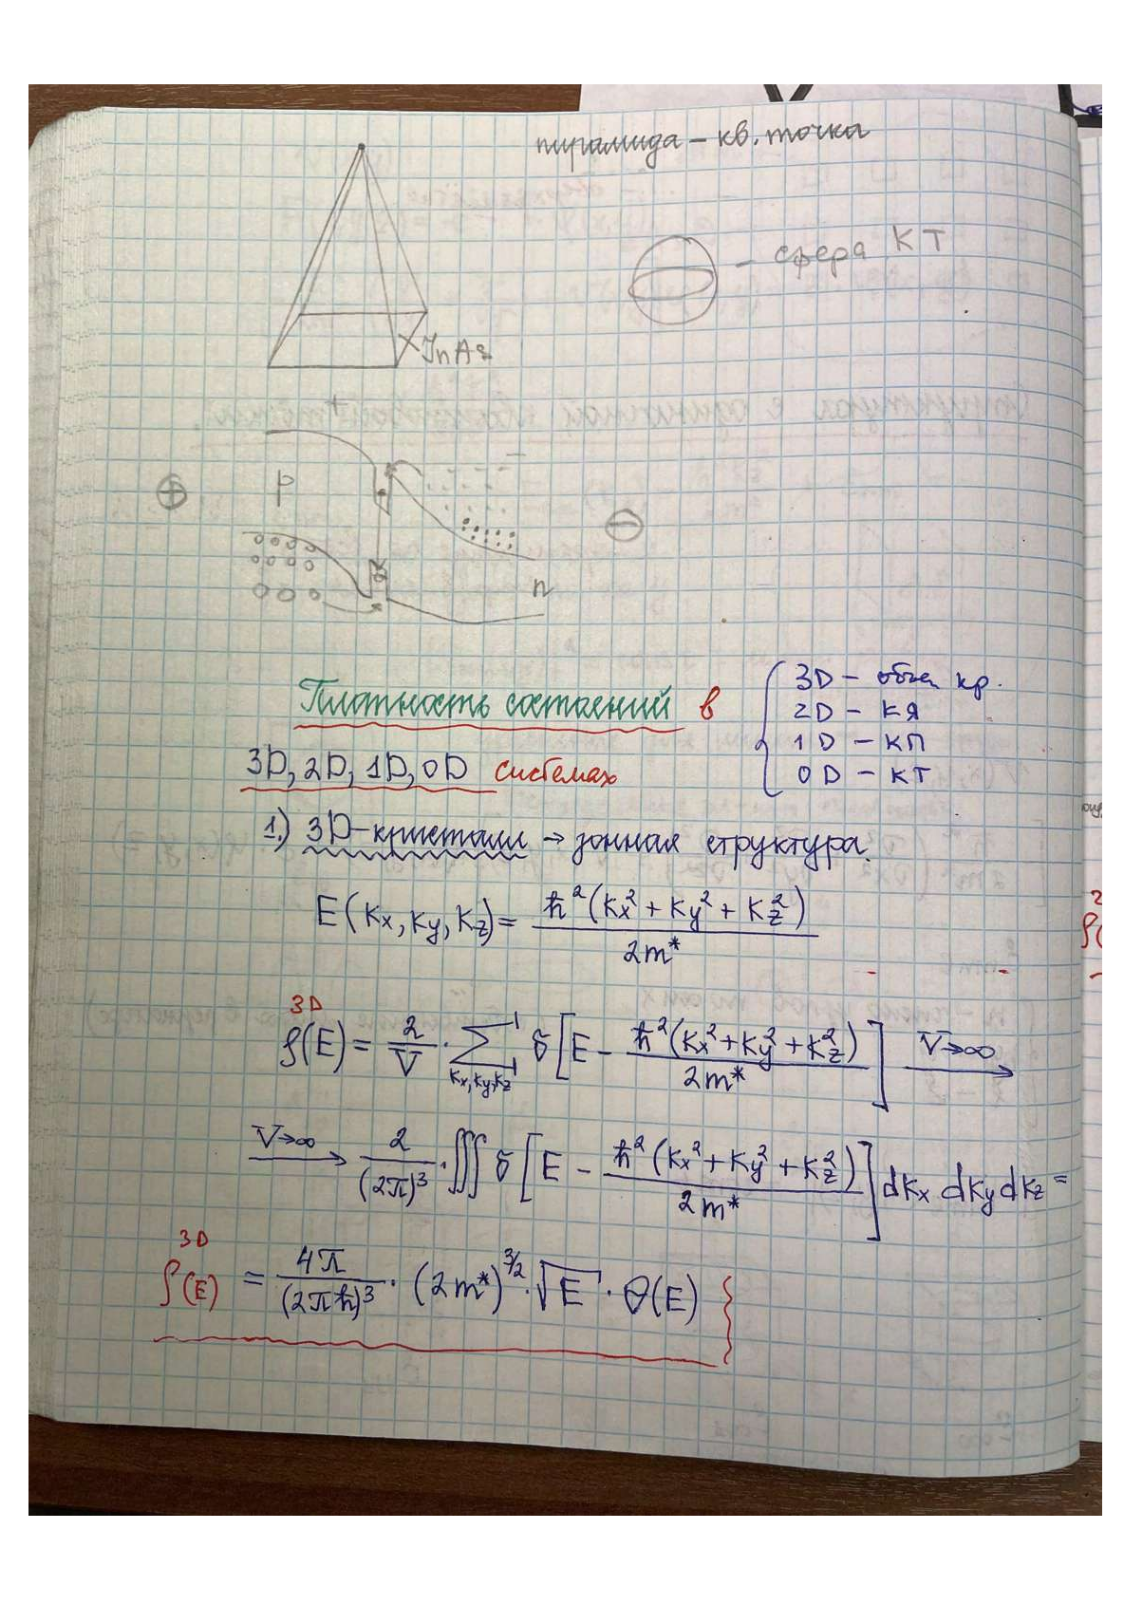 пирамида – кв. точка
– сфера КТ
InAs
+
–
⊕ p
⊖
n
Плотность состояний в
3D, 2D, 1D, 0D системах
3D – объем. кр.
2D – КЯ
1D – КП
0D – КТ
1.) 3D-кристалл → зонная структура.
E(kx, ky, kz) = ħ²(kx² + ky² + kz²) / 2m*
3D
ρ(E) = 2/V · ∑ kx,ky,kz δ[E – ħ²(kx² + ky² + kz²) / 2m*] V→∞
V→∞ 2/(2π)³ · ∭ δ[E – ħ²(kx² + ky² + kz²) / 2m*] dkx dky dkz =
3D
ρ(E) = 4π/(2πħ)³ · (2m*)^3/2 · √E · θ(E)